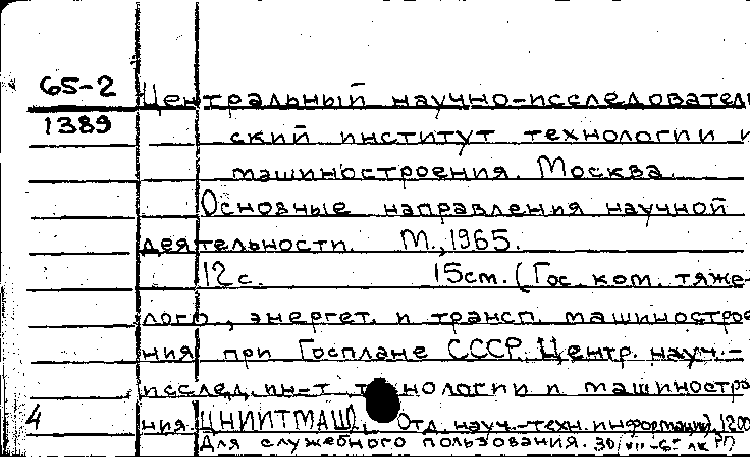 65-2
1389
Центральный научно-исследователь
ский институт технологии и
машиностроения. Москва.
Основные направления научной
деятельности. М., 1965.
12 с. 15см. (Гос. ком. тяже-
лого, энергет. и трансп. машинострое
ния при Госплане СССР. Центр. науч.-
исслед. ин-т технологии и машиностро
4 ния. ЦНИИТМАШ. Отд. науч.-техн. информации). 1200
Для служебного пользования. 30/VII-65